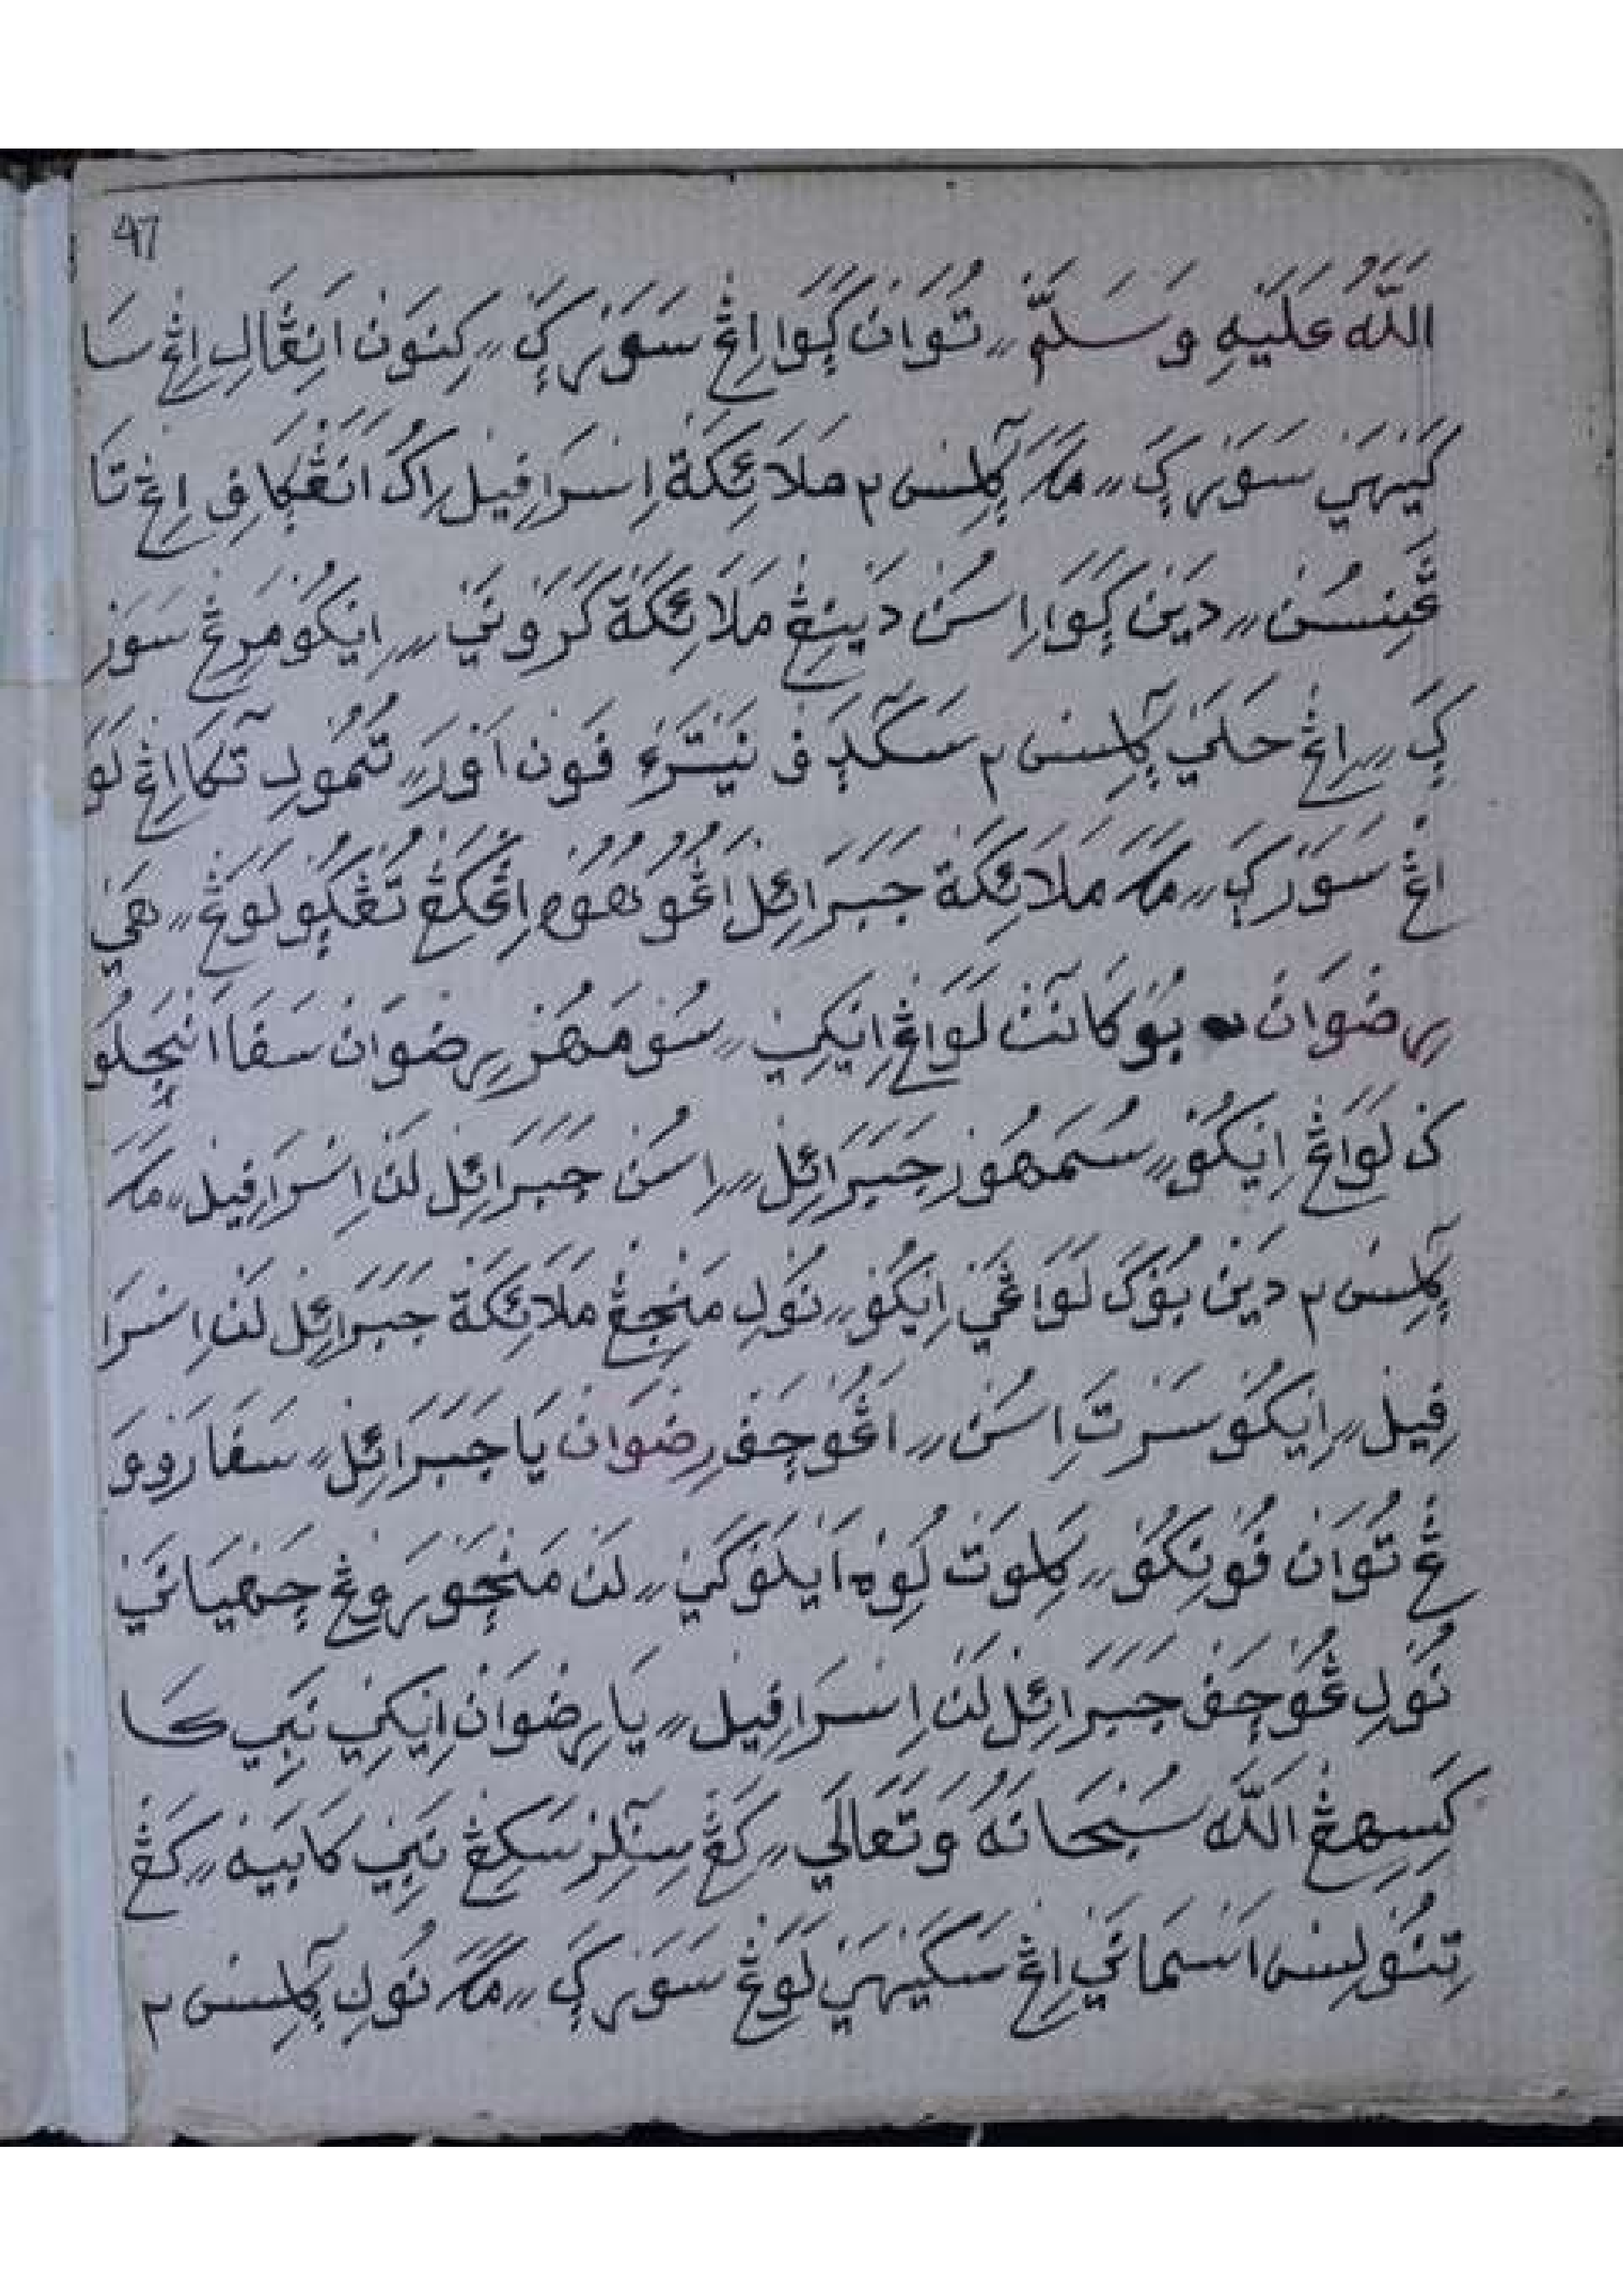 47
اللّٰهُ عَلَيْهِ وَسَلَّمْ ٫٫ تُوَانْ ݢَوَا اِڠْ سَوَرْݢَ ٫٫ كِنَوَنْ اَنِڠَالِ اِڠْ سَا
ݢَيْنِهَيْ سَوَرْݢَ ٫٫ مَكَ ݢَلِسْ٢ مَلَائِكَةْ اِسْرَافِيْلْ اَكُ اَنَڠْݢَافِ اِڠْ تَا
ڠَنِسُنْ ٫٫ دَيْنْ ݢَوَا اِسُنْ دَيْنِڠْ مَلَائِكَةْ كَرَوْنَيْ ٫٫ اِيْكُوْ مَرِڠْ سَوَرْ
ݢَ ٫٫ اِڠْ حَلَيْ ݢَلِسْ٢ سَكَدَفْ نَيْتْرَءْ فَوْنْ اَوْرَ ٫٫ تُمُوْلِ تَكَا اِڠْ لَوَ
اڠْ سَوَرْݢَ ٫٫ مَكَ مَلَائِكَةْ جَبَرَائِلْ اَڠُوْهُوْهْ اِڠْكَڠْ تُڠْݢُوْ لَوَڠْ ٫٫ هَيْ
رِضْوَانْ بُوْكَانَنْ لَوَاڠْ اِيْكِيْ ٫٫ سُوْمَهُرْ رِضْوَانْ سَفَا اَنْجَلُوْ
كْ لَوَاڠْ اِيْكُوْ ٫٫ سُمَهُوْرْ جَبَرَائِلْ ٫٫ اِسُنْ جَبَرَائِلْ لَنْ اِسْرَافِيْلْ ٫٫ مَكَ
ݢَلِسْ٢ دَيْنْ بُوْكَ لَوَاڠَيْ اِيْكُوْ ٫٫ نُوْلِ مَنْجِڠْ مَلَائِكَةْ جَبَرَائِلْ لَنْ اِسْرَا
فِيْلْ ٫٫ اِيْكُوْ سَرْتَ اِسُنْ ٫٫ اَڠُوْجَفْ رِضْوَانْ يَا جَبَرَائِلْ ٫٫ سَفَا رَوْوَ
ڠْ تُوَانْ فُوْنِكُوْ ٫٫ كَلِوَتْ لُوِهْ اَيْلَوْكَيْ ٫٫ لَنْ مَنْجَوْرَوْڠْ جَهْيَانَيْ
نُوْلِ ڠُوْجَفْ جَبَرَائِلْ لَنْ اِسْرَافِيْلْ ٫٫ يَا رِضْوَانْ اِيْكِيْ نَبِيْ كَا
كَسِهِڠْ اللّٰهْ سُبْحَانَهُ وَتَعَالَي ٫٫ كَڠْ سِنَلِرْ سَكِڠْ نَبِيْ كَابَيْهْ ٫٫ كَڠْ
تِنُوْلِسْ اَسْمَانَيْ اِڠْ سَݢَيْنِهَيْ لَوَڠْ سَوَرْݢَ ٫٫ مَكَ نُوْلِ ݢَلِسْ٢